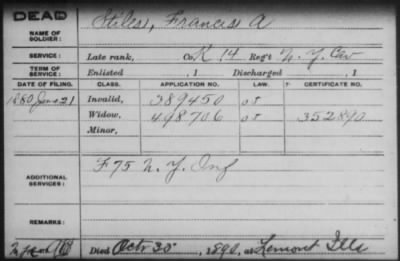 DEAD
NAME OF SOLDIER: Stiles, Francis A
SERVICE: Late rank, Co. K 14 Reg't N. Y. Cav
TERM OF SERVICE: Enlisted , 1 Discharged , 1
DATE OF FILING. CLASS. APPLICATION NO. LAW. CERTIFICATE NO.
1880 June 21 Invalid, 389450
Widow, 498706 352890
Minor,
ADDITIONAL SERVICES: F 75 N. Y. Inf
REMARKS:
Died Oct 30, 1890, at Lemont Ills